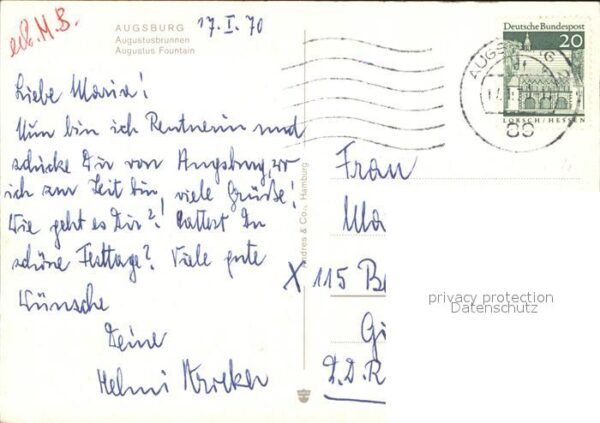 erl. M. B.
AUGSBURG
Augustusbrunnen
Augustus Fountain
17.I.70
Deutsche Bundespost
20
LORSCH/HESSEN
AUGSBURG
Liebe Maria!
Nun bin ich Rentnerin und
schicke Dir von Augsburg, wo
ich zur Zeit bin, viele Grüße!
Wie geht es Dir?! Hattest Du
schöne Festtage? Viele gute
Wünsche
Deine
Helmi
Andres & Co., Hamburg
Frau
Ma
X 115 B
G
D.D.R
privacy protection
Datenschutz